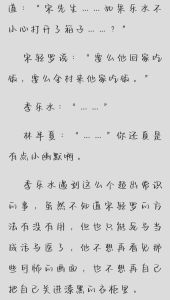 道：“宋先生……如果乐水不
小心打开了箱子……？”
宋轻罗说：“要么他回家吃
饭，要么全村来他家吃饭。”
李乐水：“……”
林半夏：“……”你还真是
有点小幽默啊。
李乐水遇到这么个超出常识
的事，虽然不知道宋轻罗的方
法有没有用，但也只能死马当
成活马医了，他不想再看见那
些可怖的画面，也不想再自己
把自己关进漆黑的衣柜里。